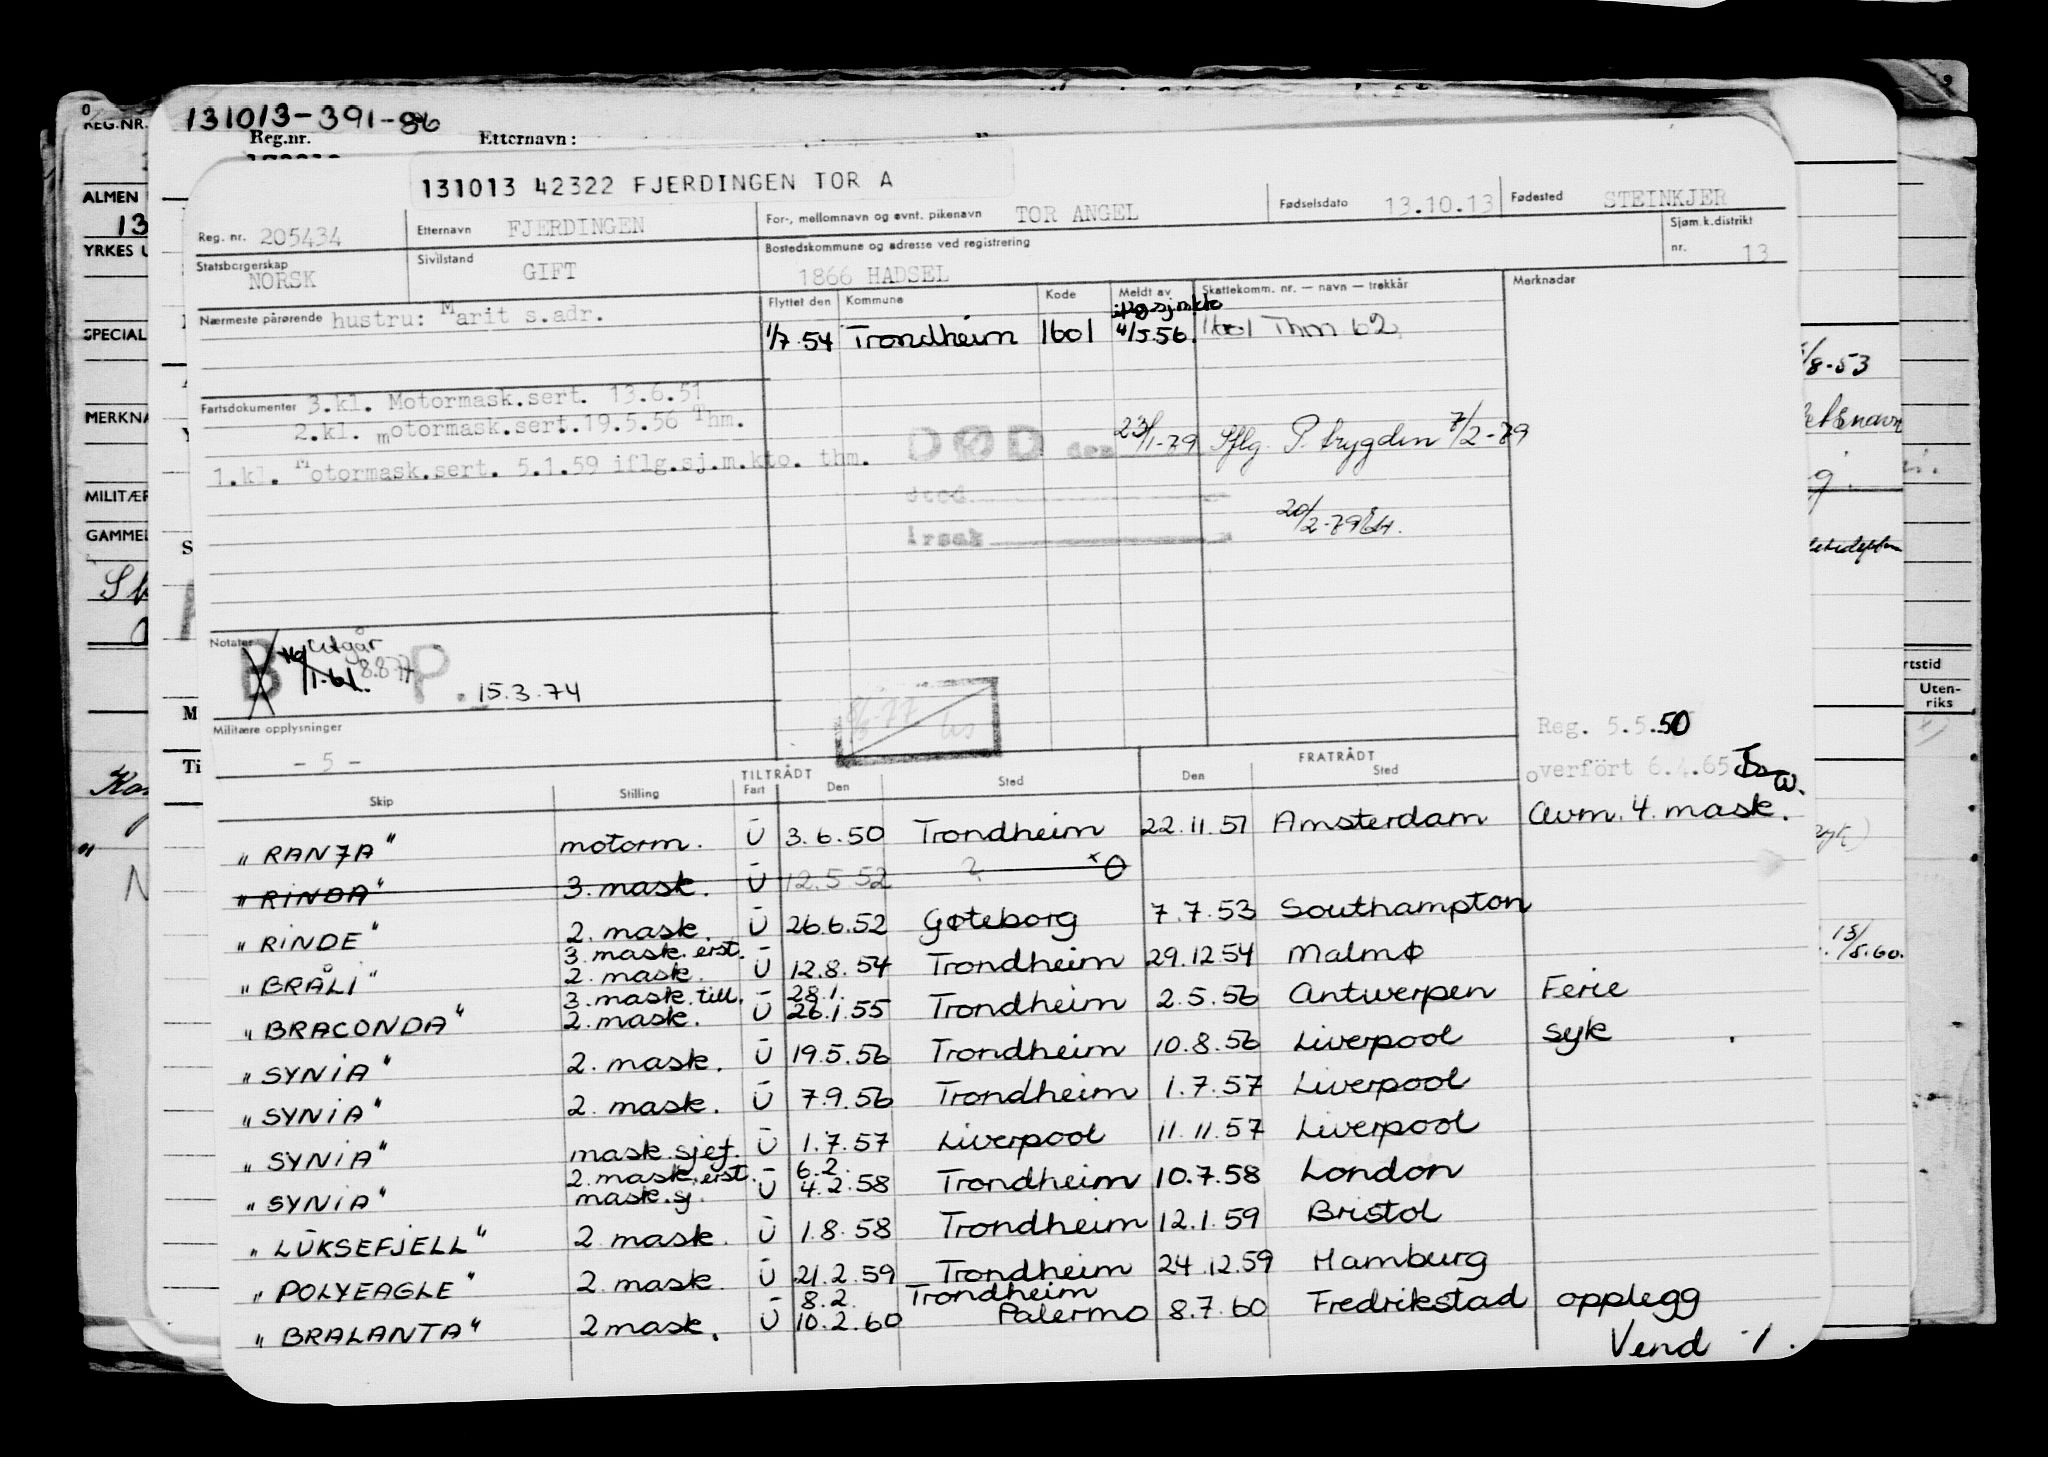 131013-391-86
Reg.nr. Etternavn:
131013 42322 FJERDINGEN TOR A
Reg. nr. 205434 Etternavn FJERDINGEN For-, mellomnavn og evnt. pikenavn TOR ANGEL Fødselsdato 13.10.13 Fødested STEINKJER
Statsborgerskap NORSK Sivilstand GIFT Bostedskommune og adresse ved registrering 1866 HADSEL Sjøm.k.distrikt nr. 13
Nærmeste pårørende hustru: Marit s.adr. Flyttet den Kommune Kode Meldt av Skattekomm. nr. — navn — trekkår Merknader
1/7.54 Trondheim 1601 4/5.56. 1601 Thm 62
Fartsdokumenter 3.kl. Motormask.sert. 13.6.51
2.kl. motormask.sert.19.5.56 Thm.
1.kl. Motormask.sert. 5.1.59 iflg.sj.m.kto. thm.
DØD den 23/1-79 Iflg. P. trygden 7/2-79
Sted
Årsak
20/2-79
Notater B Utgår 8.8.77 P. 15.3.74
Militære opplysninger
- 5 -
Reg. 5.5.50
overført 6.4.65
TILTRÅDT FRATRÅDT
Skip Stilling Fart Den Sted Den Sted
"RANJA" motorm. U 3.6.50 Trondheim 22.11.51 Amsterdam Avm. 4. mask.
"RINDA" 3. mask. U 12.5.52 ?
"RINDE" 2. mask. U 26.6.52 Gøteborg 7.7.53 Southampton
"BRÅLI" 3. mask. erst. 2. mask. U 12.8.54 Trondheim 29.12.54 Malmø
"BRACONDA" 3. mask. till. 2. mask. U 28.1. 26.1.55 Trondheim 2.5.56 Antwerpen Ferie
"SYNIA" 2. mask. U 19.5.56 Trondheim 10.8.56 Liverpool Syk
"SYNIA" 2. mask. U 7.9.56 Trondheim 1.7.57 Liverpool
"SYNIA" mask.sjef. U 1.7.57 Liverpool 11.11.57 Liverpool
"SYNIA" 2. mask. erst. mask.sj. U 6.2. 4.2.58 Trondheim 10.7.58 London
"LUKSEFJELL" 2 mask. U 1.8.58 Trondheim 12.1.59 Bristol
"POLYEAGLE" 2. mask. U 21.2.59 Trondheim 24.12.59 Hamburg
"BRALANTA" 2 mask. U 8.2. 10.2.60 Trondheim Palermo 8.7.60 Fredrikstad opplegg
Vend ./.
REG.NR.
ALMEN
13
YRKES U
SPECIAL
MERKNA
MILITÆR
GAMMEL
/8-53
15/5.60.
rtstid
Uten-
riks